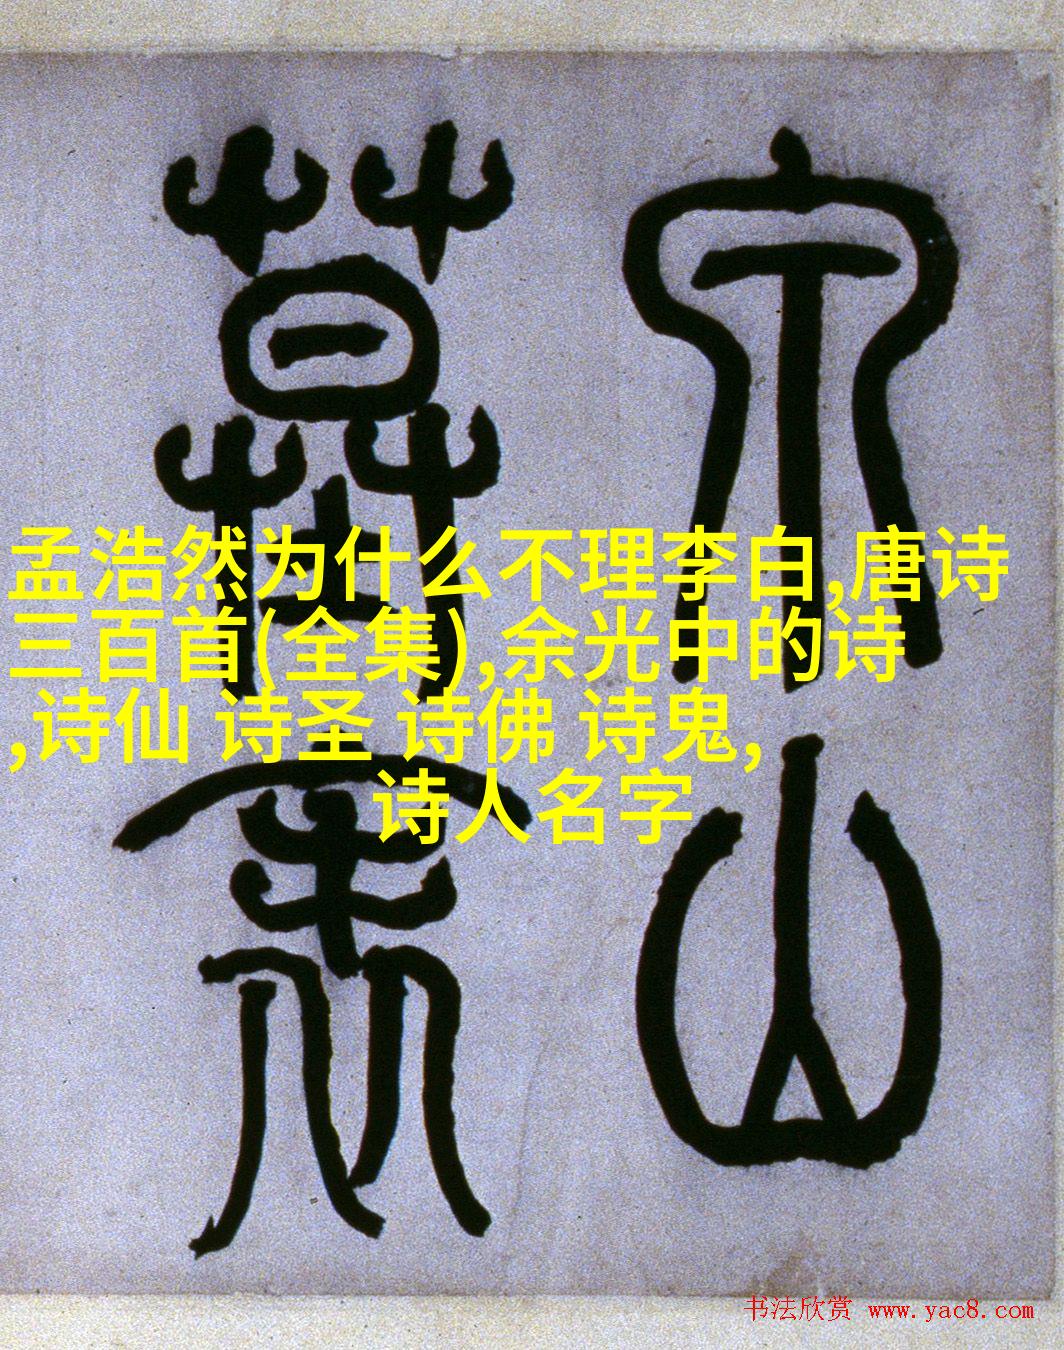 孟浩然为什么不理李白,唐诗
三百首(全集),余光中的诗
,诗仙 诗圣 诗佛 诗鬼,
诗人名字
山
墓表
书法欣赏 www.yac8.com